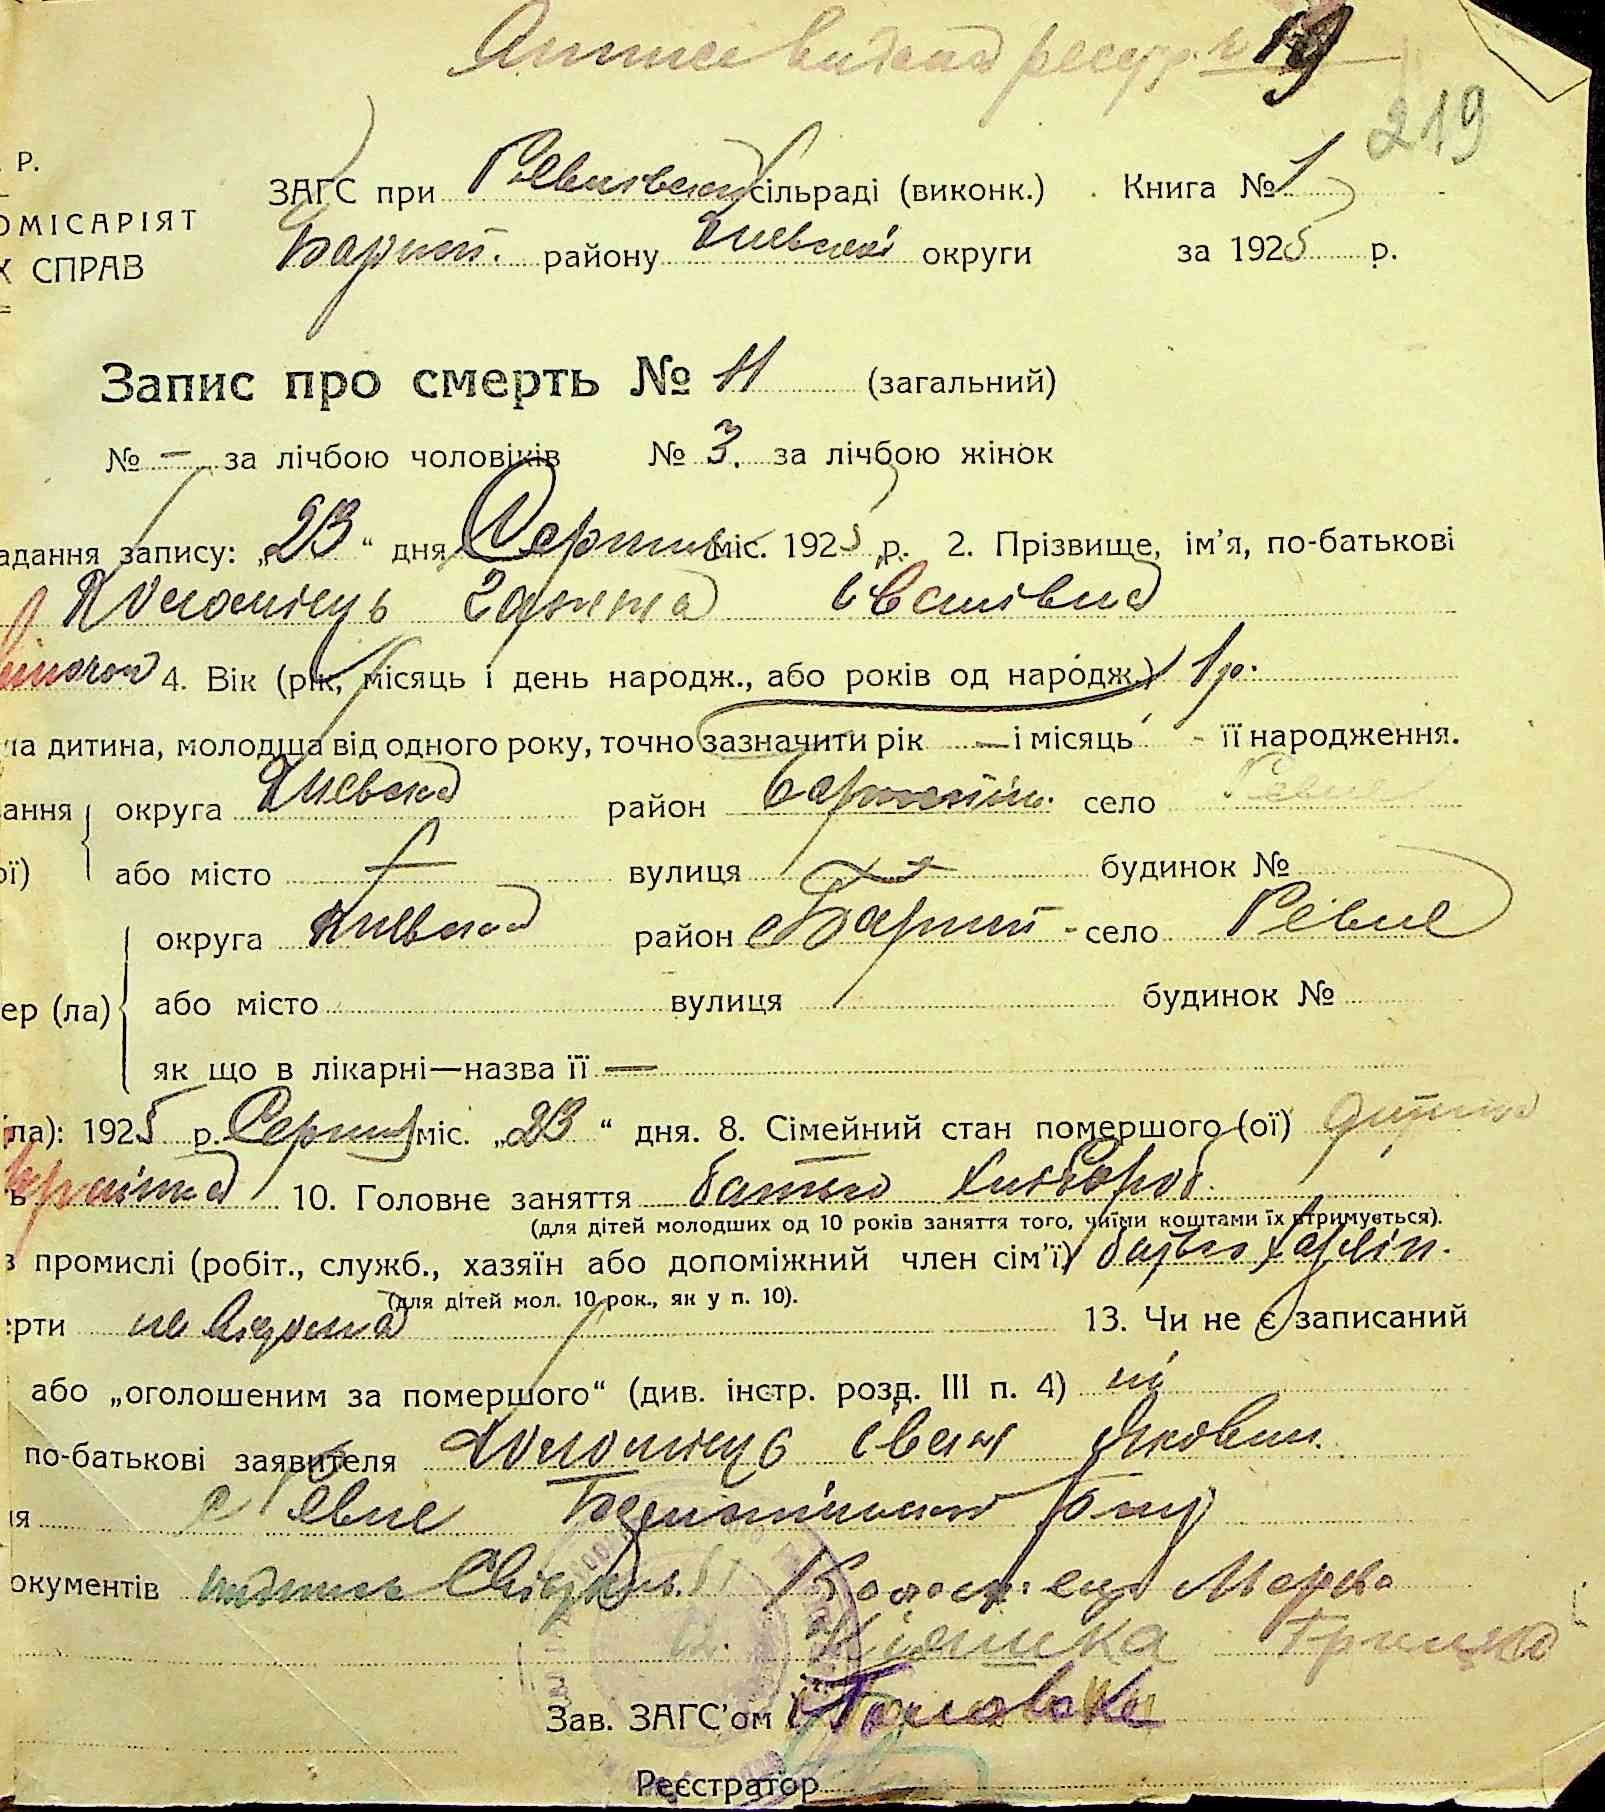 219
Р.
ЗАГС при Ревнівській сільраді (виконк.) Книга № 1
ОМІСАРІЯТ
Барит. району Київської округи за 1925 р.
Х СПРАВ
Запис про смерть № 11 (загальний)
№ – за лічбою чоловіків № 3. за лічбою жінок
адання запису: „23“ дня Серпня міс. 1925 р. 2. Прізвище, ім'я, по-батькові
Коломієць Ганна Іванівна
жіноча 4. Вік (рік, місяць і день народж., або років од народж.) 1 р.
ла дитина, молодша від одного року, точно зазначити рік — і місяць - її народження.
ання округа Київська район село Ревне
ої) або місто вулиця будинок №
округа Київська район Барит - село Ревне
ер (ла) або місто вулиця будинок №
як що в лікарні—назва її —
ла): 1925 р. Серпня міс. „23“ дня. 8. Сімейний стан помершого (ої) дитина
ь українка 10. Головне заняття батько хлібороб.
(для дітей молодших од 10 років заняття того, чиїми коштами їх втримується).
в промислі (робіт., служб., хазяїн або допоміжний член сім'ї) батько хазяїн.
(для дітей мол. 10 рок., як у п. 10).
ерти не відома 13. Чи не є записаний
або „оголошеним за помершого“ (див. інстр. розд. III п. 4) ні
по-батькові заявителя Коломієць Іван Якович.
ня с Ревне
окументів Коломієць Марко
2. Кияшка Грицько
Зав. ЗАГС'ом
Реєстратор